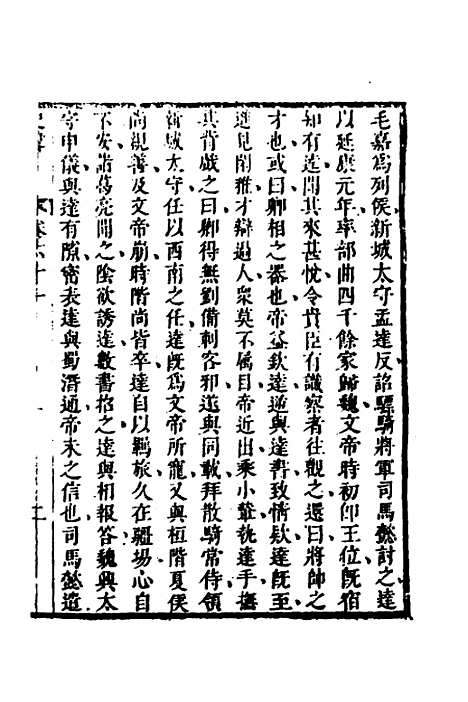 毛嘉爲列侯新城太守孟達反詔驃騎將軍司馬懿討之達
以延康元年率部曲四千餘家歸魏文帝時初卽王位旣宿
知有達聞其來甚悅令貴臣有識察者往觀之還曰將帥之
才也或曰卿相之器也帝益欽達逆與達書致情欵達旣至
進見閑雅才辯過人衆莫不屬目帝近出乘小輦執達手撫
其背戲之曰卿得無劉備刺客邪遂與同載拜散騎常侍領
新城太守任以西南之任達旣爲文帝所寵又與桓階夏侯
尚親善及文帝崩時階尚皆卒達自以羈旅久在疆場心自
不安諸葛亮聞之陰欲誘達數書招之達與相報答魏興太
守申儀與達有隙密表達與蜀潛通帝未之信也司馬懿遣
卷六十